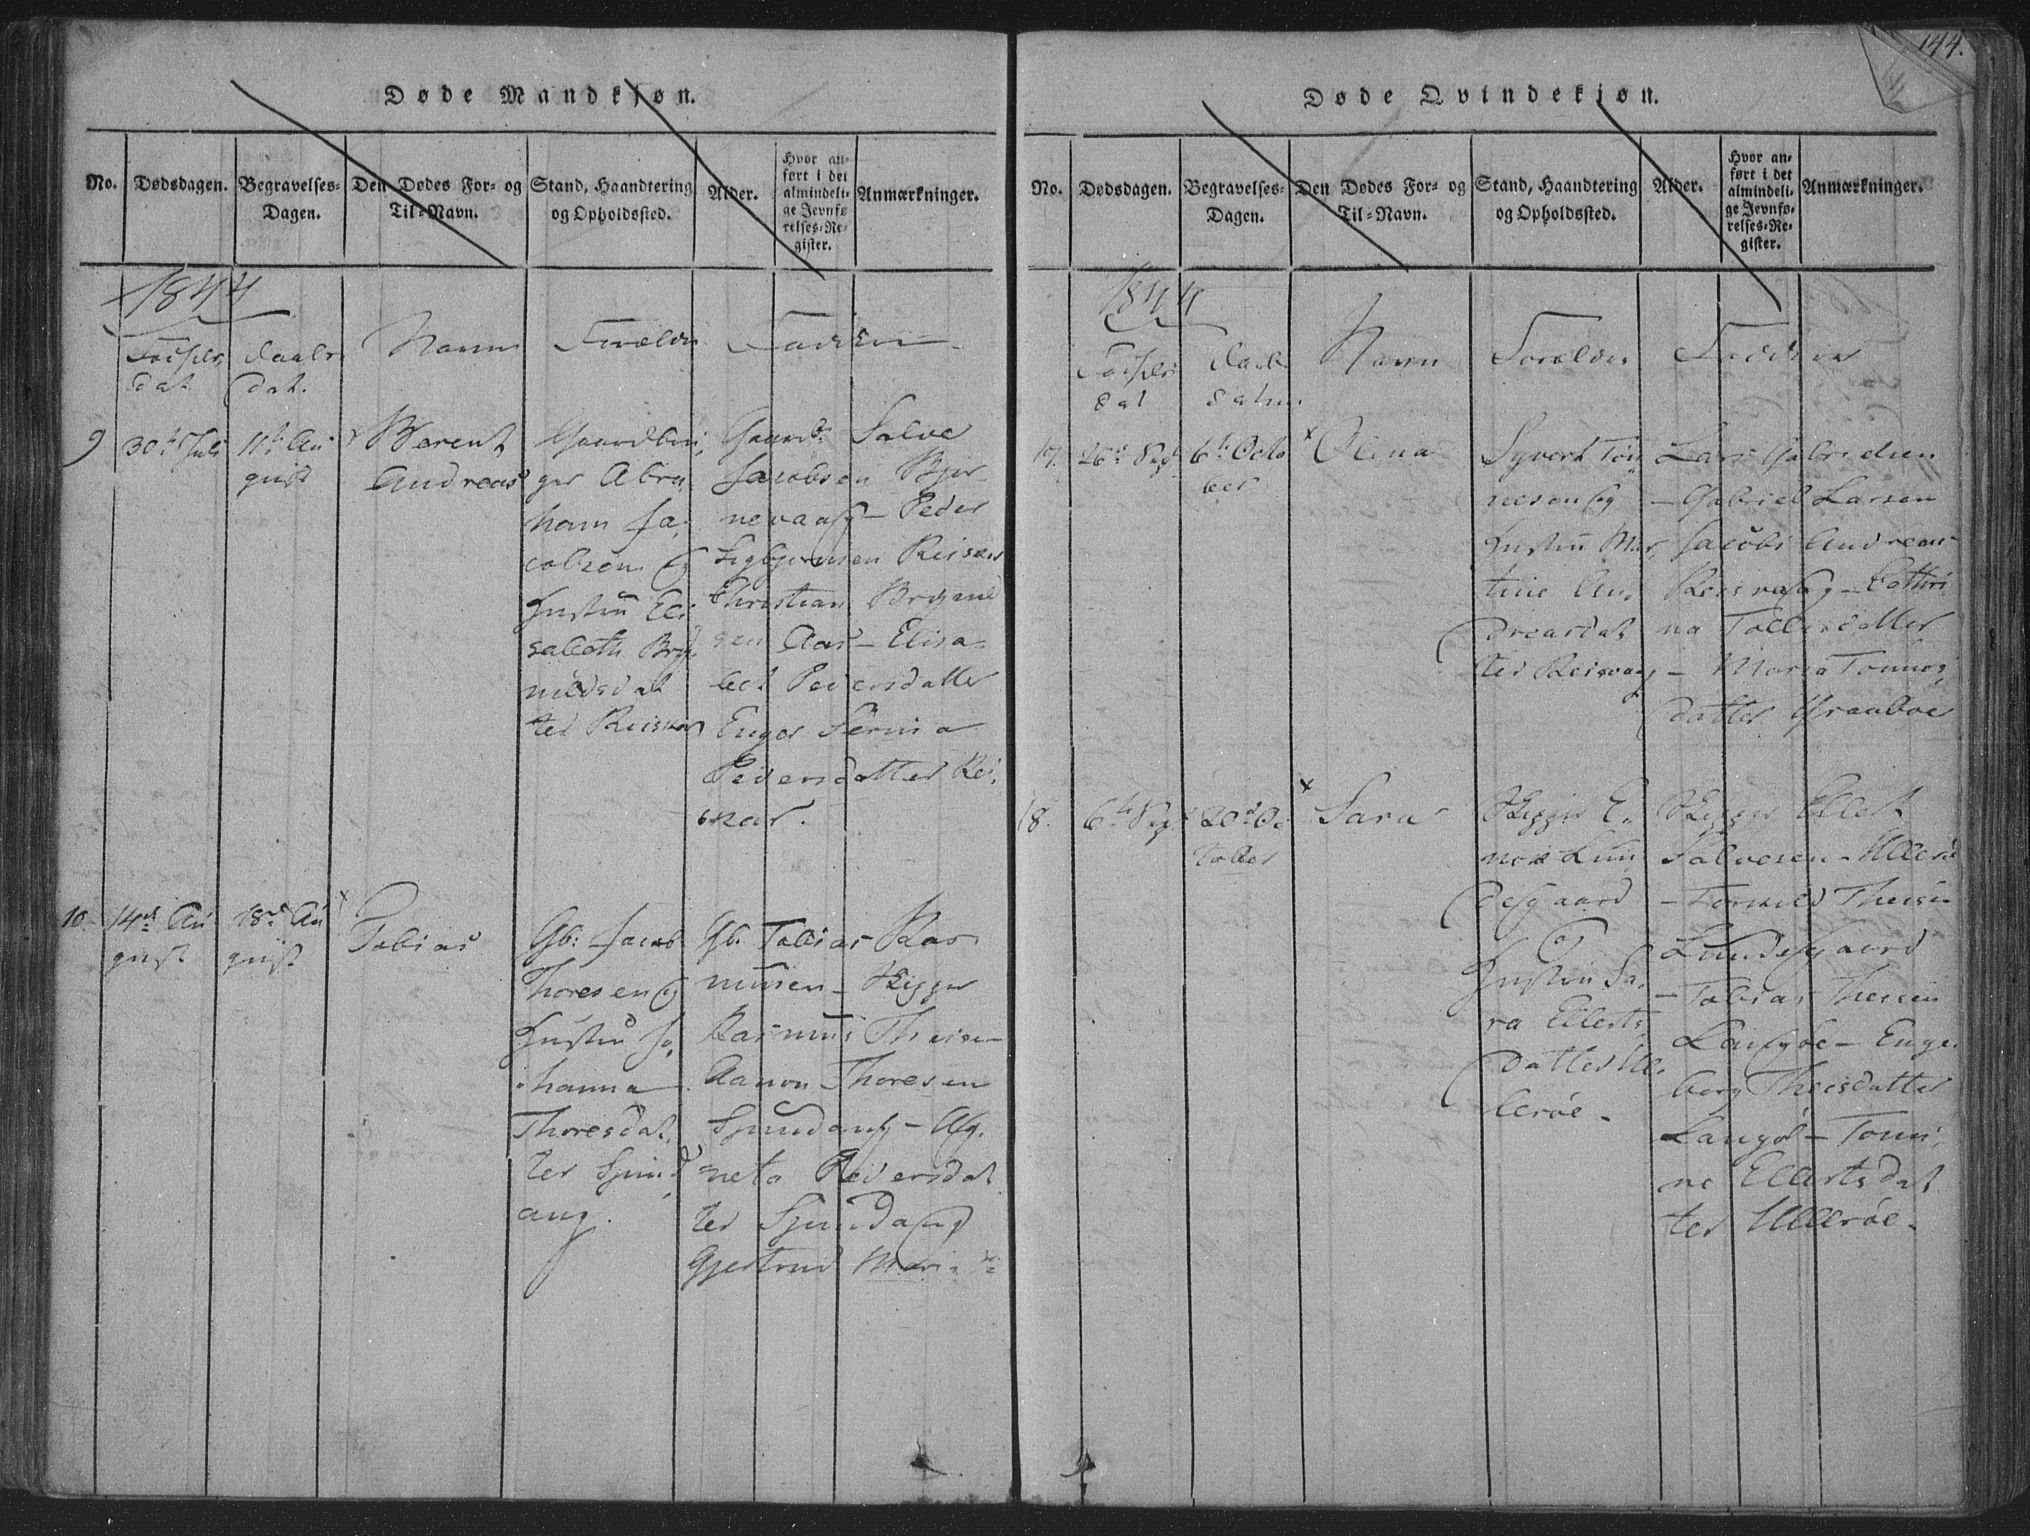 144.
Døde Mandkjøn.
No.
Dødsdagen.
Begravelses-
Dagen.
Den Dødes For- og
Til-Navn.
Stand, Haandtering
og Opholdssted.
Alder.
Hvor an-
ført i det
almindeli-
ge Jevnfø-
relses-Re-
gister.
Anmærkninger.
1844
Fødsels
dat
Daabs
dat.
Navn
Forældre
Faddere
9
30te Juli
11te Au
gust
Berent
Andreas
Gaardbru
ger Abra
ham Ja
cobsen og
Hustru Eli
sabeth Bry
nildsdat
ter Reisvar
Gaardb: Salve
Jacobsen
Peder
Reisvar
Christian Brynild
sen Aas - Elisa-
bet Pedersdatter
Enger
Pedersdatter Rei
svar.
10
14de Au
gust
18de Au
gust
Tobias
Gb: Jacob
Thoresen og
Hustru Jo
hanna
Thoresdat
ter Spind
ang.
Gb. Tobias Ras
musen - Skipper
Rasmus Theisen
Aanon Thoresen
Spindang - Ag
neta Pedersdat
ter Spindang
Gjertrud Maria
Døde Qvindekjøn.
No.
Dødsdagen.
Begravelses-
Dagen.
Den Dødes For- og
Til-Navn.
Stand, Haandtering
og Opholdssted.
Alder.
Hvor an-
ført i det
almindeli-
ge Jevnfø-
relses-Re-
gister.
Anmærkninger.
1844
Fødsels
dat
Daabs
datum
Navn
Forældre
Faddere
17.
26de Sep
6te Octo
ber
Olina
Syvert Tøn
nesen og
Hustru Mar
tine An
dreasdat
ter Reisvaag
Lars Gabrielsen
- Gabriel Larsen
Jacob Andreas
Reisvaag - Cathri
na Tollersdatter
- Maria Tønnes
datter Graaboe
18.
6te Sep
20de Oc
tober
Sara
Skipper E.
Lun
desgaard
og
Hustru Sa
ra Ellerts
datter Ul
lerøe -
Skipper Ellert
Salvesen - Ullerøe
- Theisen
Lundesgaard
- Tobias Theisen
Langøe - Enge
borg Theisdatter
Langøe - Tonni
ne Ellertsdat
ter Ullerøe -